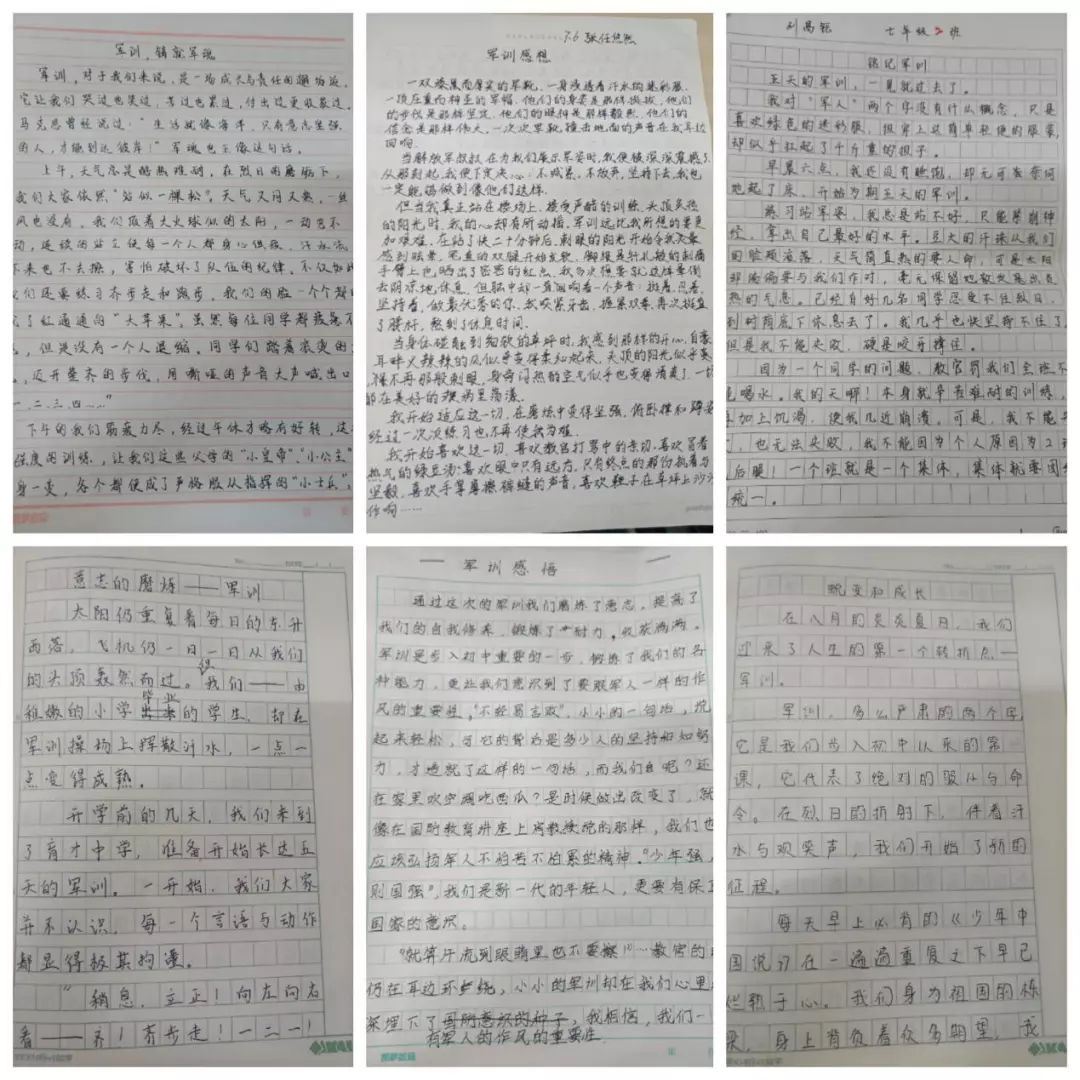 军训，铸就军魂
军训，对于我们来说，是一场成长与责任的
它让我们哭过也笑过，苦过也累过，付出过更收获过。
马克思曾经说过："生活就像海洋，只有意志坚强
的人，才能到达彼岸！"军魂也正像这句话。
上午，天气总是酷热难耐，在烈日的磨励下，
我们大家依然"站似一棵松"。天气又闷又热，一丝
风也没有，我们顶着大火球似的太阳，一动也不
动，连续的站立使每一个人都身心俱疲，汗水流
下来也不去擦，害怕破坏了队伍的纪律。不仅如此
我们还要练习齐步走和跑步，我们的脸一个个都
成了红通通的"大苹果"。虽然每位同学都疲惫不
，但是没有一个人退缩。同学们踏着
，迈开整齐的步伐，用嘶哑的声音大声喊出口
一、二、三、四……"
下午的我们筋疲力尽，经过午休才略有好转，这
强度的训练，让我们这些父母的"小皇帝"、"小公主"
身一变，各个都便成了严格服从指挥的"小士兵"。
7.6 张任悠然
军训感想
一双漆黑而厚实的军靴，一身浸透着汗水的迷彩服，
一顶庄重而神圣的军帽，他们的身姿是那样挺拔，他们
的步伐是那样坚定，他们的眼神是那样毅然，他们的
信念是那样伟大，一次次军靴撞击地面的声音在我耳边
回响。
当解放军叔叔在为我们展示军姿时，我便被深深震撼了
从那刻起，我便下定决心：不喊累，不放弃，坚持下去，我也
一定能够做到像他们这样。
但当我真正站在操场上，接受严酷的训练，头顶炙热
的阳光时，我的心却有所动摇。军训远比我所想的要更
加艰难。在站了快二十分钟后，刺眼的阳光开始令我
感到眩晕，笔直的双腿开始发软，脚板是针扎般的刺痛
手臂上也晒出了密密的红点，我多次想要就这样晕倒
去阴凉地休息，但脑中却一直回响着一个声音：挺着，忍着，
坚持着，做最优秀的你。我咬紧牙齿，握紧双拳，再次挺直
了腰杆，熬到了休息时间。
当身体碰触到细软的草坪时，我感到那样的开心，自豪
耳畔火辣辣的风似乎变得柔和起来，头顶的阳光似乎变
得不再那般刺眼，身旁闷热的空气似乎也变得清爽了，一切
都在美好的
我开始适应这一切，在磨炼中变得坚强，俯卧撑和蹲姿
经过一次次练习也不再使我为难。
我开始喜欢这一切，喜欢教官打骂中的亲切，喜欢冒着
热气的绿豆汤，喜欢眼中只有远方，只有终点的那份执着与
坚毅，喜欢手掌摩擦裤缝的声音，喜欢鞋子在草坪上沙沙
作响……
七年级2班
铭记军训
五天的军训，一晃就过去了。
我对"军人"两个字没有什么概念，只是
喜欢绿色的迷彩服，但穿上这简单轻便的服装，
却似乎扛起了千斤重的担子。
早晨六点，我还没有睡饱，却无可奈何
地起了床，开始为期五天的军训。
练习站军姿，我总是站不好，只能屏崩神
经，拿出自己最好的水平。豆大的汗珠从我们
的脸颊滴落，天气简直热的要人命，可是太阳
却偏偏要与我们作对，毫无保留地散发是出炎
热的气息。已经有好几名同学忍受不住烈日，
到树荫底下休息去了。我几乎也快坚持不住了，
但是我不能失败，硬是咬牙撑住。
因为一个同学的问题，教官罚我们全班不
能喝水。我的天啊！本身就辛苦难耐的训练，
再加上饥渴，使我几近崩溃。可是，我不能
，也无法失败，我不能因为个人原因为2班
后腿！一个班就是一个集体，集体就要团结
统一。
意志的磨炼——军训
太阳仍重复着每日的东升
西落，飞机仍一日一日从我们
的头顶轰然而过。但我们——由
稚嫩的小学毕业的学生，却在
军训操场上挥散汗水，一点一
点变得成熟。
开学前的几天，我们来到
了育才中学，准备开始长达五
天的军训。一开始，我们大家
并不认识，每一个言语与动作
都显得极其拘谨。
"稍息，立正！向左向右
看——齐！齐步走！一二一！
军训感悟
通过这次的军训我们磨炼了意志，提高了
我们的自我修养，锻炼了耐力，收获满满。
军训是步入初中重要的一步，锻炼了我们的各
种能力，更让我们意识到了要跟军人一样的作
风的重要性。"不轻易言败"，小小的一句话，说
起来轻松，可它的背后是多少人的坚持和努
力，才造就了这样的一句话，而我们自呢？还
在家里吹空调吃西瓜？是时候做出改变了，就
像在国防教育讲座上高教授说的那样，我们也
应该弘扬军人不怕苦不怕累的精神。"少年强，
则国强"，我们是新一代的年轻人，更要有保卫
国家的意识。
"就算汗流到眼睛里也不要擦！"……教官的
仍在耳边环绕，小小的军训却在我们心里
深埋下了有军人的作风的重要性，我相信，我们一
蜕变和成长
在八月的炎炎夏日，我们
迎来了人生的第一个转折点—
军训。
军训，多么严肃的两个字，
它是我们步入初中以来的第
课，它代表了绝对的服从与命
令。在烈日的折射下，伴着汗
水与欢笑声，我们开始了新的
征程。
每天早上必背的《少年中
国说》在一遍遍重复之下早已
烂熟于心。我们身为祖国的栋
梁，身上背负着众多期望，我